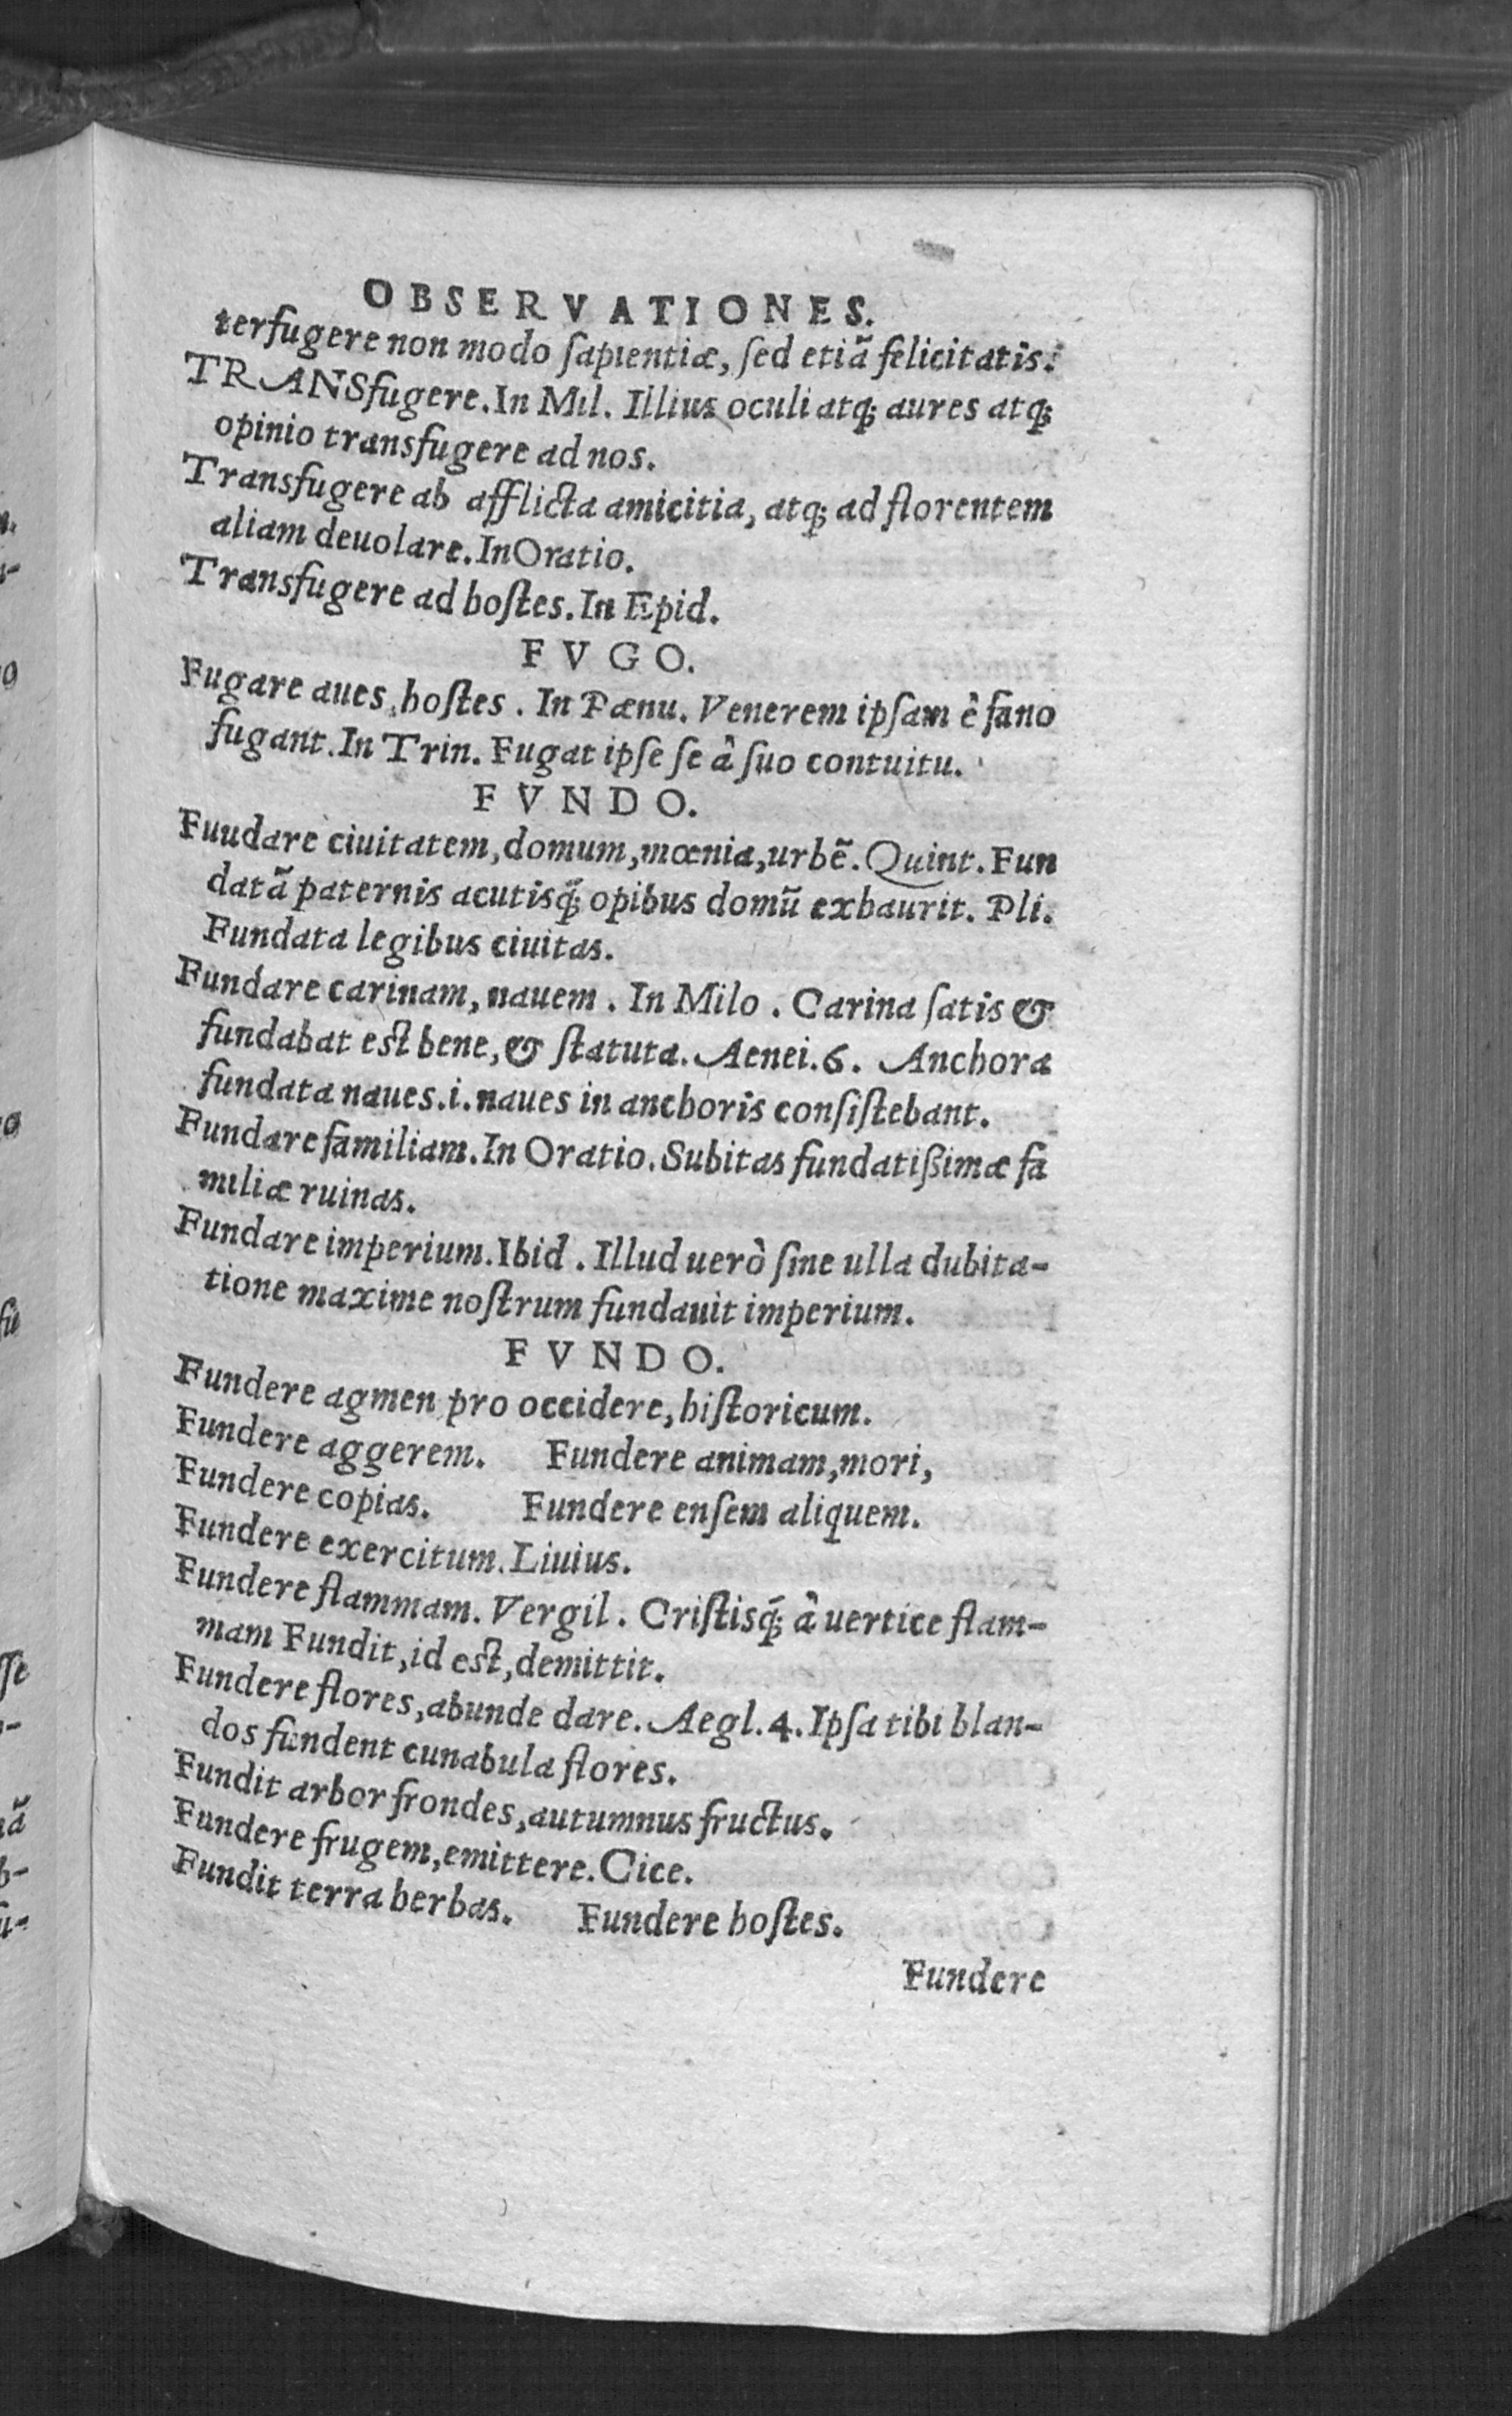 OBSERVATIONES.
terfugere non modo ſapientiæ, ſed etiã felicitatis.
TRANSfugere. In Mil. Illius oculi atq; aures atq;
opinio transfugere ad nos.
Transfugere ab afflicta amicitia, atq; ad florentem
aliam deuolare. In Oratio.
Transfugere ad hoſtes. In Epid.
FVGO.
Fugare aues, hoſtes. In Pænu. Venerem ipſam è fano
fugant. In Trin. Fugat ipſe ſe à ſuo contuitu.
FVNDO.
Fuudare ciuitatem, domum, mœnia, urbẽ. Quint. Fun
datã paternis acutisq́; opibus domũ exhaurit. Pli.
Fundata legibus ciuitas.
Fundare carinam, nauem. In Milo. Carina ſatis &
fundabat est bene, & ſtatuta. Aenei. 6. Anchora
fundata naues. i. naues in anchoris conſiſtebant.
Fundare familiam. In Oratio. Subitas fundatißimæ fa
miliæ ruinas.
Fundare imperium. Ibid. Illud uerò ſine ulla dubita-
tione maxime noſtrum fundauit imperium.
FVNDO.
Fundere agmen pro occidere, hiſtoricum.
Fundere aggerem. Fundere animam, mori,
Fundere copias. Fundere enſem aliquem.
Fundere exercitum. Liuius.
Fundere flammam. Vergil. Criſtisq́; à uertice flam-
mam Fundit, id est, demittit.
Fundere flores, abunde dare. Aegl. 4. Ipſa tibi blan-
dos fundent cunabula flores.
Fundit arbor frondes, autumnus fructus.
Fundere frugem, emittere. Cice.
Fundit terra herbas. Fundere hoſtes.
Fundere